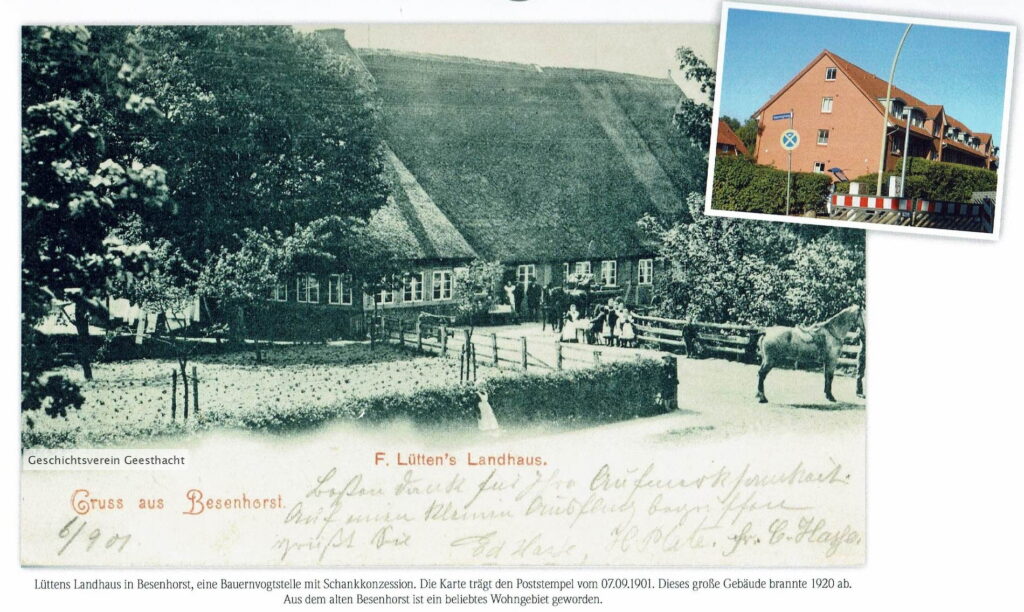 Geschichtsverein Geesthacht
F. Lütten's Landhaus.
Gruss aus Besenhorst.
6/9 01
Besten Dank für Ihre Aufmerksamkeit.
Auf einem kleinen Ausflug begriffen
grüßt Sie
Lüttens Landhaus in Besenhorst, eine Bauernvogtstelle mit Schankkonzession. Die Karte trägt den Poststempel vom 07.09.1901. Dieses große Gebäude brannte 1920 ab.
Aus dem alten Besenhorst ist ein beliebtes Wohngebiet geworden.